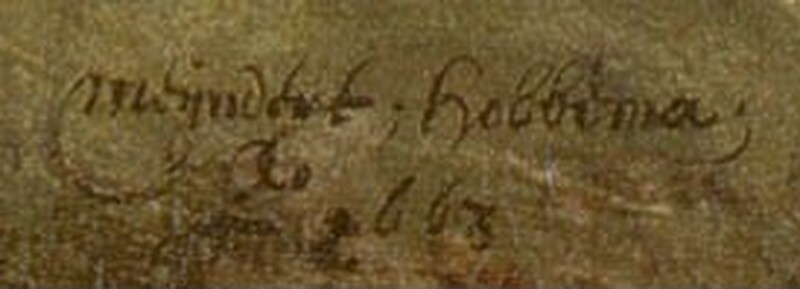 meijndert · hobbema
Ao
1663